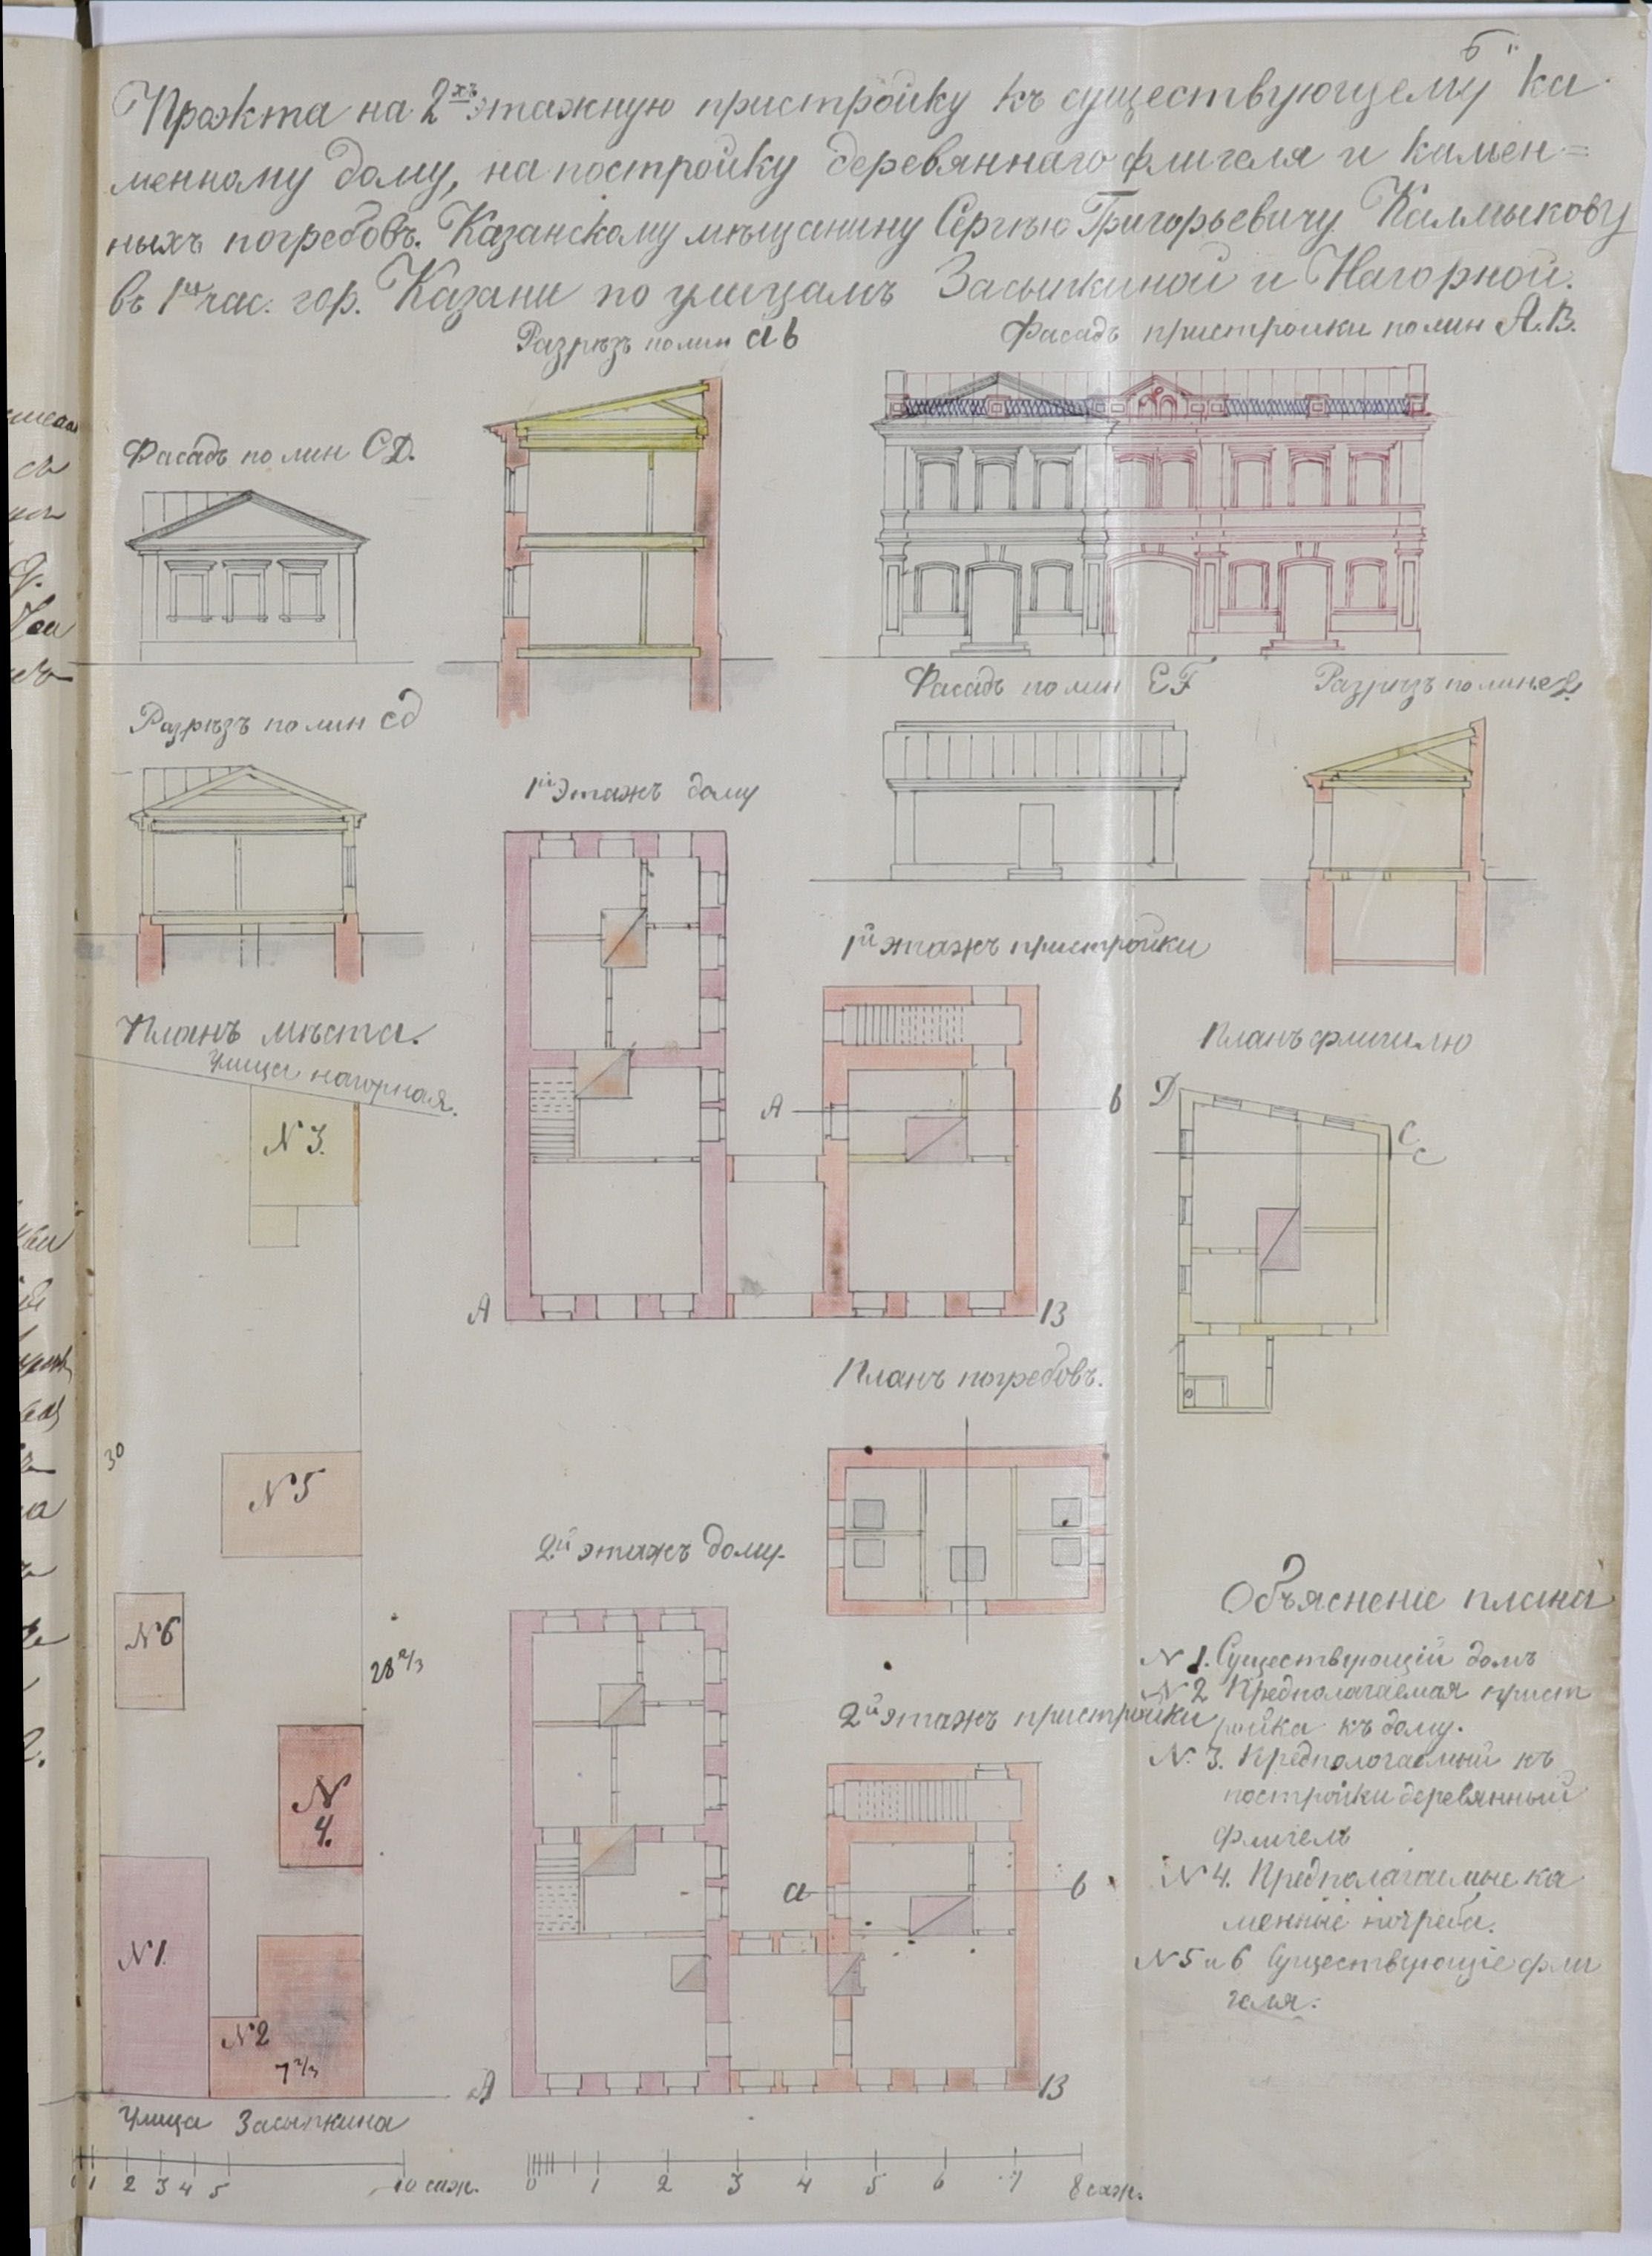 Проэкта на 2хъ этажную пристройку къ существующему ка
менному дому, на постройку деревяннаго флигеля и камен=
ныхъ погребовъ. Казанскому мѣщанину Сергѣю Григорьевичу Калмыкову
въ 1й час. гор. Казани по улицамъ Засыпкиной и Нагорной.
Разрѣзъ по лин ab
Фасадъ пристройки по лин А.В.
Фасадъ по лин СД.
Фасадъ по лин ЕF
Разрѣзъ по лин. ef.
Разрѣзъ по лин сд
1й этажъ дому
1й этажъ пристройки
Планъ мѣста.
Улица нагорная.
Планъ флигилю
N 3.
А
b
Д
С
с
А
В
Планъ погребовъ.
30
N 5
2й этажъ дому.
N 6
28 2/3
Объяснение плана
N 1. Существующій домъ
N 2 Предполагаемая прист
ройка къ дому.
N. 3. Предпологаемый къ
постройки деревянный
флигель
N 4. Предполагаимые ка
менные погреба.
N 5 и 6 Существующіе фли
геля:
2й этажъ пристройки
N 4.
а
b
N 1.
N 2
7 2/3
А
В
Улица Засыпкина
0 1 2 3 4 5 10 саж.
0 1 2 3 4 5 6 7 8 саж.